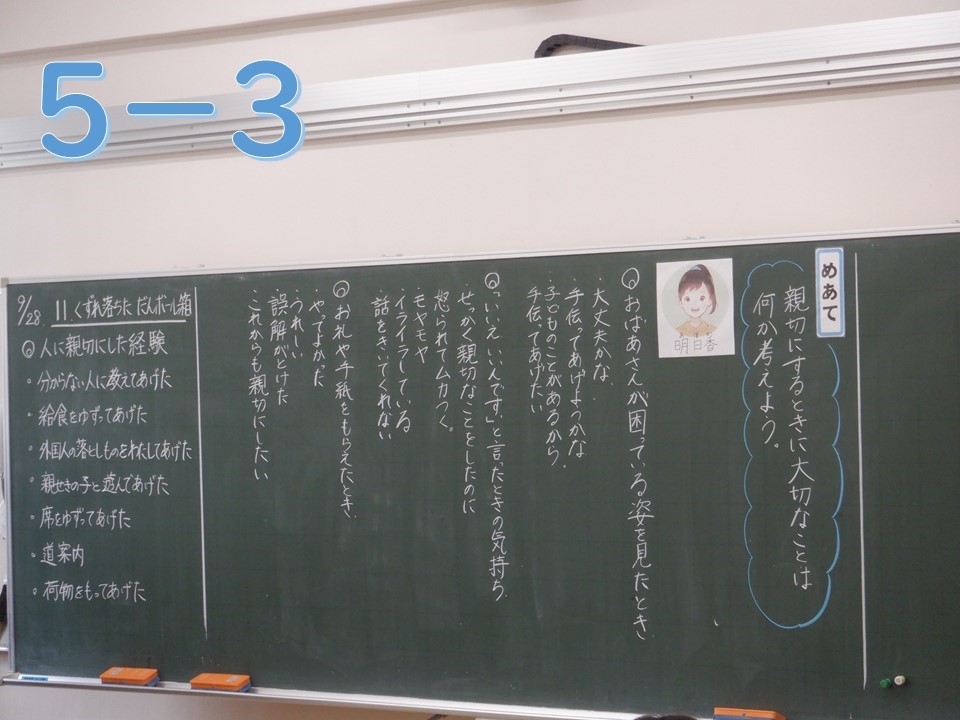 5－3
9/28 11 くずれ落ちただんボール箱
◎人に親切にした経験
・分からない人に教えてあげた
・給食をゆずってあげた
・外国人の落としものをわたしてあげた
・親せきの子と遊んであげた
・席をゆずってあげた
・道案内
・荷物をもってあげた
めあて
親切にするときに大切なことは
何か考えよう。
明日香
◎おばあさんが困っている姿を見たとき
・大丈夫かな
・手伝ってあげようかな
・子どものことがあるから
手伝ってあげたい
◎「いいえ、いいんです」と言ったときの気持ち
・せっかく親切なことをしたのに
怒られてムカつく。
・モヤモヤ
・イライラしている
・話をきいてくれない
◎お礼や手紙をもらえたとき
・やってよかった
・うれしい
・誤解がとけた
・これからも親切にしたい